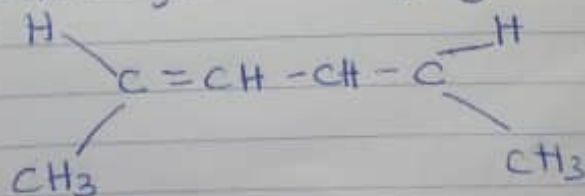 H H
C = CH - CH - C
CH3 CH3